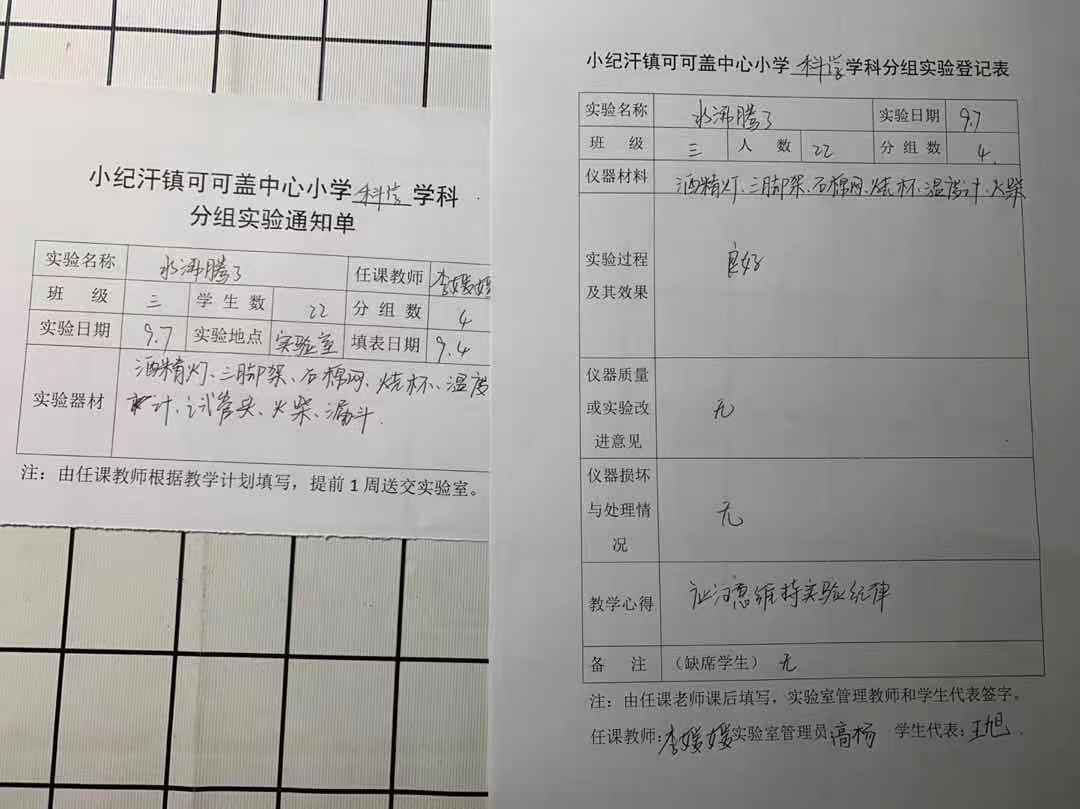 小纪汗镇可可盖中心小学科学学科
分组实验通知单
实验名称 水沸腾了 任课教师 李媛媛
班 级 三 学生数 22 分组数 4
实验日期 9.7 实验地点 实验室 填表日期 9.4
实验器材 酒精灯、三脚架、石棉网、烧杯、温度
计、试管夹、火柴、漏斗.
注：由任课教师根据教学计划填写，提前1周送交实验室。
小纪汗镇可可盖中心小学科学学科分组实验登记表
实验名称 水沸腾了 实验日期 9.7
班 级 三 人 数 22 分组数 4.
仪器材料 酒精灯、三脚架、石棉网、烧杯、温度计、火柴
实验过程
及其效果
良好
仪器质量
或实验改
进意见
无
仪器损坏
与处理情
况
无
教学心得 应注意维持实验纪律
备 注 （缺席学生） 无
注：由任课老师课后填写，实验室管理教师和学生代表签字。
任课教师:李媛媛 实验室管理员:高杨 学生代表:王旭.